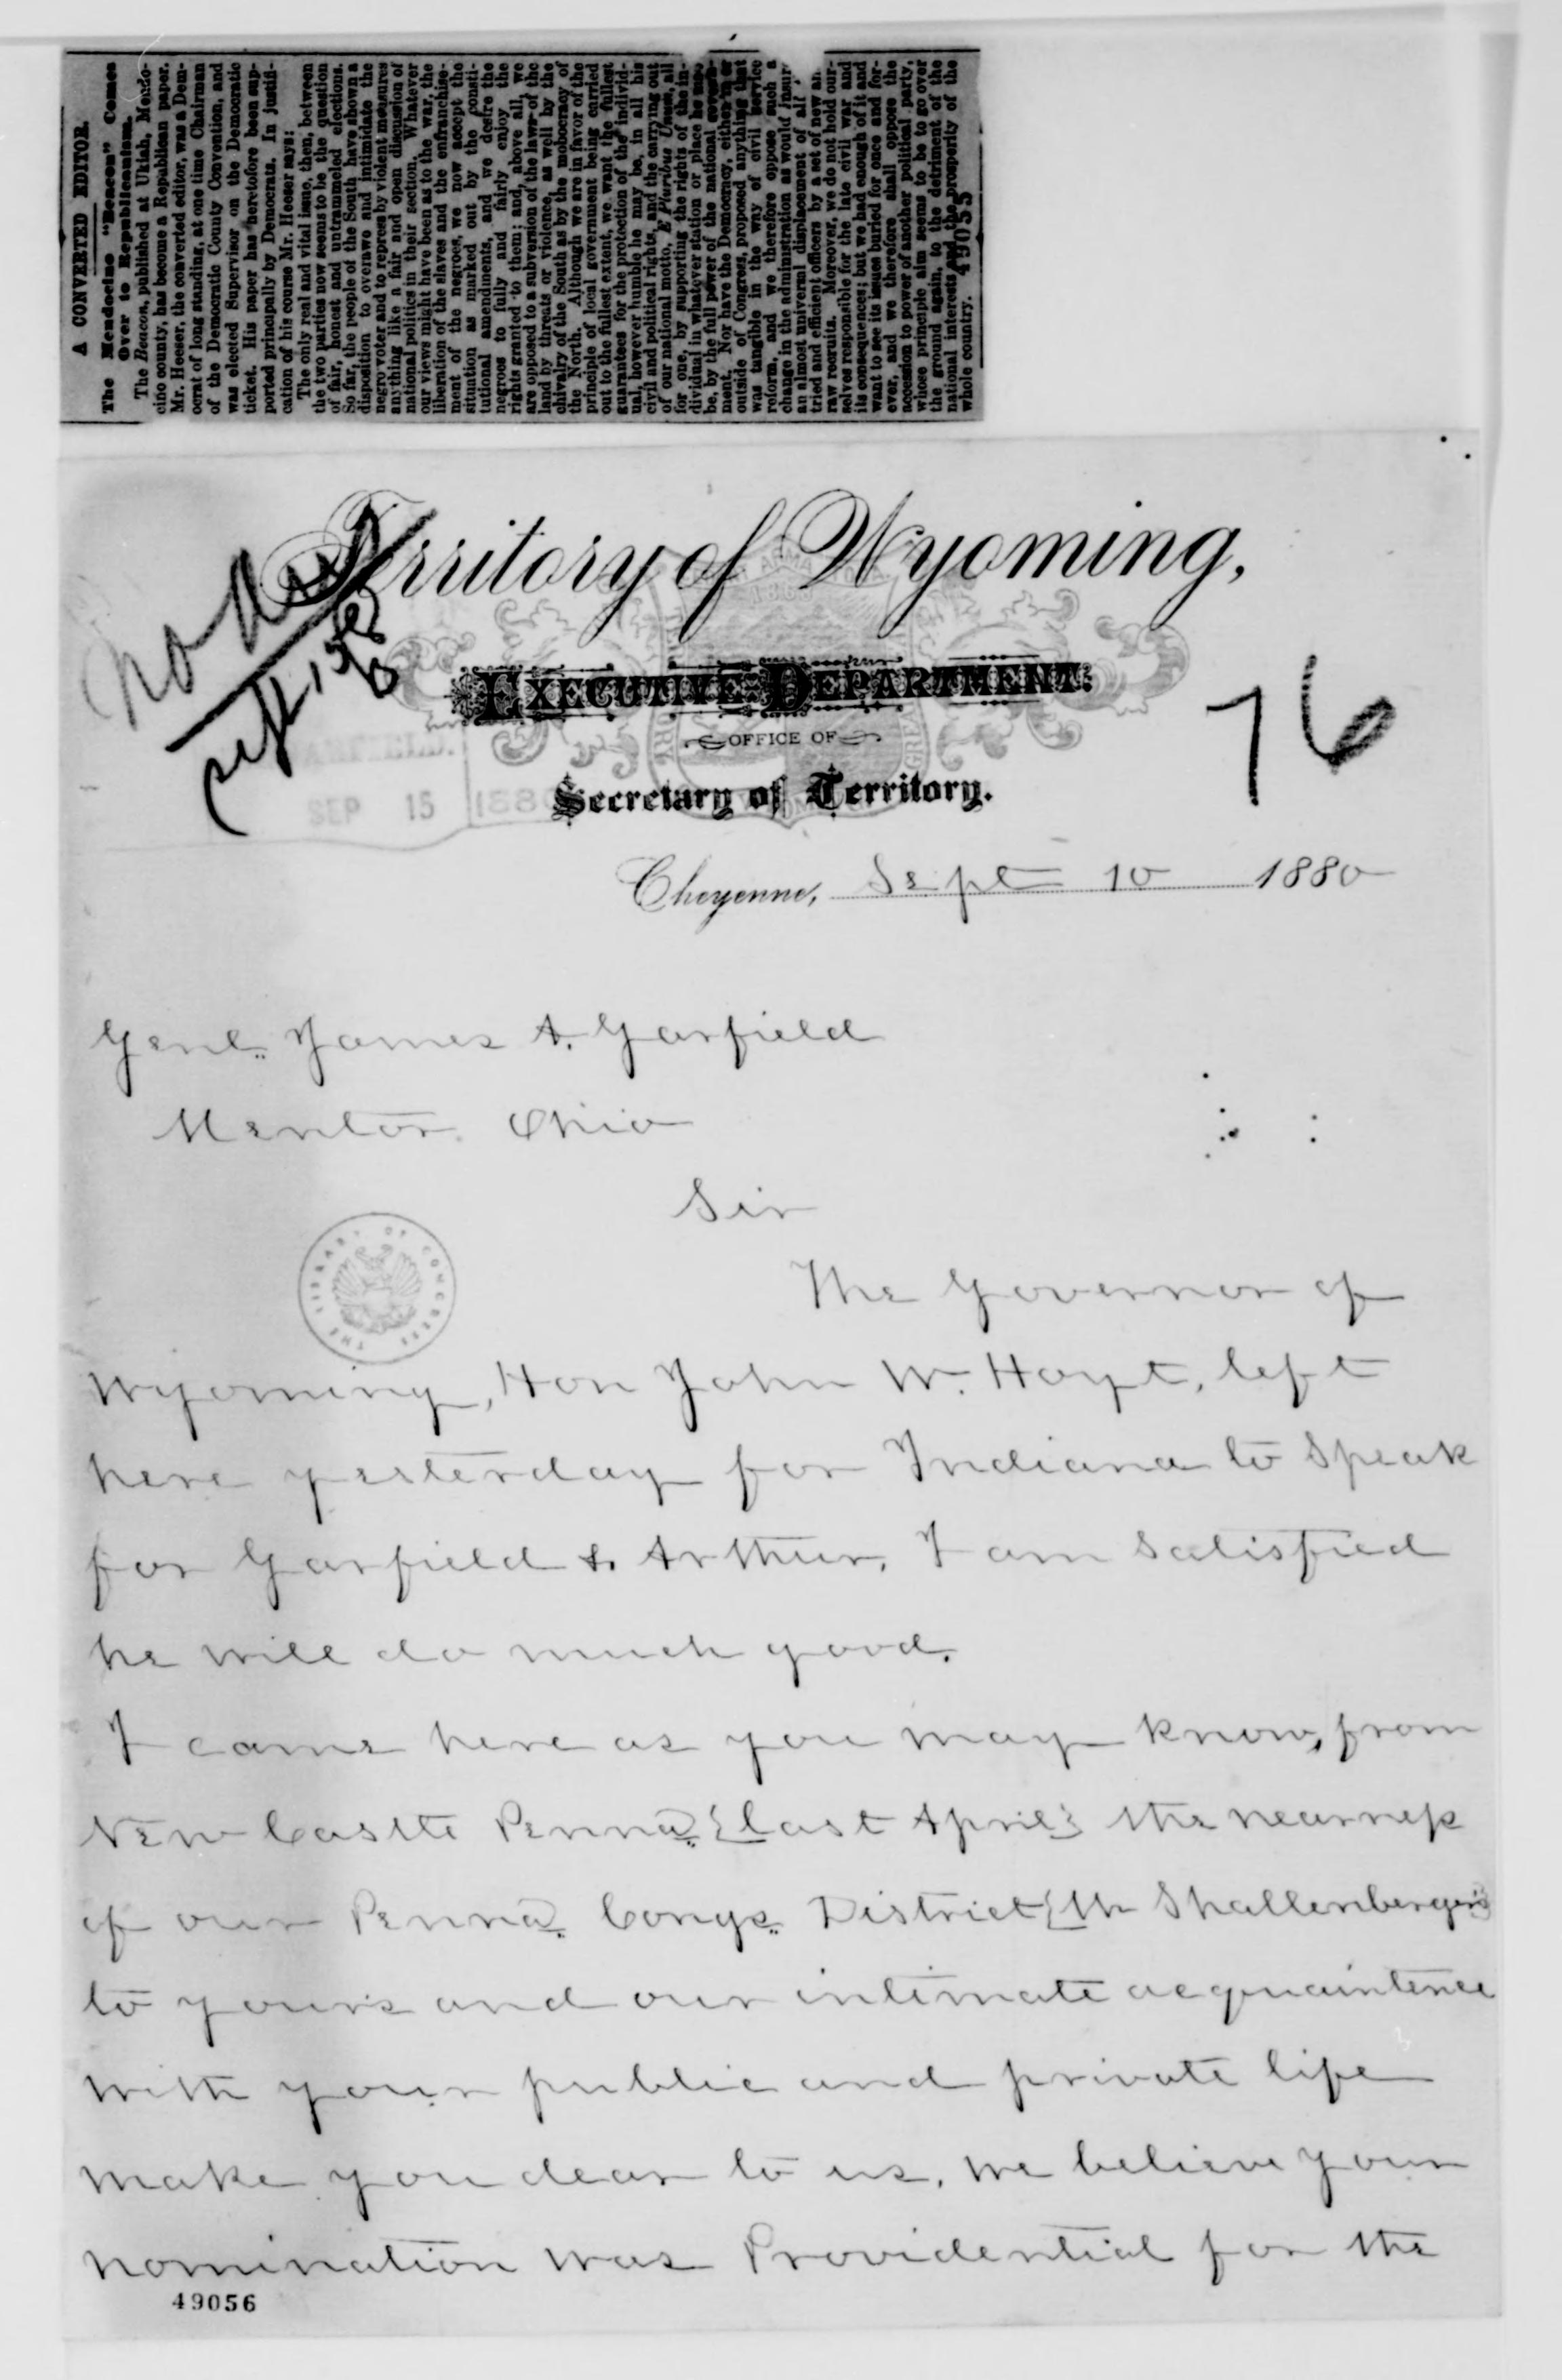 A CONVERTED EDITOR.
The Mendocino "Beacon" Comes
Over to Republicanism.
The Beacon, published at Ukiah, Mendo-
cino county, has become a Republican paper.
Mr. Heeser, the converted editor, was a Dem-
ocrat of long standing, at one time Chairman
of the Democratic County Convention, and
was elected Supervisor on the Democratic
ticket. His paper has heretofore been sup-
ported principally by Democrats. In justifi-
cation of his course Mr. Heeser says:
The only real and vital issue, then, between
the two parties now seems to be the question
of fair, honest and untrammeled elections.
So far, the people of the South have shown a
disposition to overawe and intimidate the
negro voter and to repress by violent measures
anything like a fair and open discussion of
national politics in their section. Whatever
our views might have been as to the war, the
liberation of the slaves and the enfranchise-
ment of the negroes, we now accept the
situation as marked out by the consti-
tutional amendments, and we desire the
negroes to fully and fairly enjoy the
rights granted to them; and, above all, we
are opposed to a subversion of the laws of the
land by threats or violence, as well by the
chivalry of the South as by the mobocracy of
the North. Although we are in favor of the
principle of local government being carried
out to the fullest extent, we want the fullest
guarantees for the protection of the individ-
ual, however humble he may be, in all his
civil and political rights, and the carrying out
of our national motto, E Pluribus Unum, all
for one, by supporting the rights of the in-
dividual in whatever station or place he may
be, by the full power of the national govern-
ment. Nor have the Democracy, either in or
outside of Congress, proposed anything that
was tangible in the way of civil service
reform, and we therefore oppose such a
change in the administration as would insure
an almost universal displacement of all
tried and efficient officers by a set of new an
raw recruits. Moreover, we do not hold our-
selves responsible for the late civil war and
its consequences; but we had enough of it and
want to see its issues buried for once and for-
ever, and we therefore shall oppose the
accession to power of another political party,
whose principle aim seems to be to go over
the ground again, to the detriment of the
national interests and the prosperity of the
whole country. 49055
Territory of Wyoming,
EXECUTIVE DEPARTMENT.
OFFICE OF
Secretary of Territory.
No
Sept 15
76
GARFIELD.
SEP 15 1880
Cheyenne, Sept 10 1880
Genl. James A. Garfield
Mentor. Ohio
Sir
THE LIBRARY OF CONGRESS
The Governor of
Wyoming, Hon John W. Hoyt, left
here yesterday for Indiana to Speak
for Garfield & Arthur. I am satisfied
he will do much good.
I came here as you may know, from
New Castle Penna. {last April} the nearness
of our Penna. Congs. District {the Shallenbergers}
to yours and our intimate acquaintence
with your public and private life
make you dear to us. We believe your
nomination was Providential for the
49056